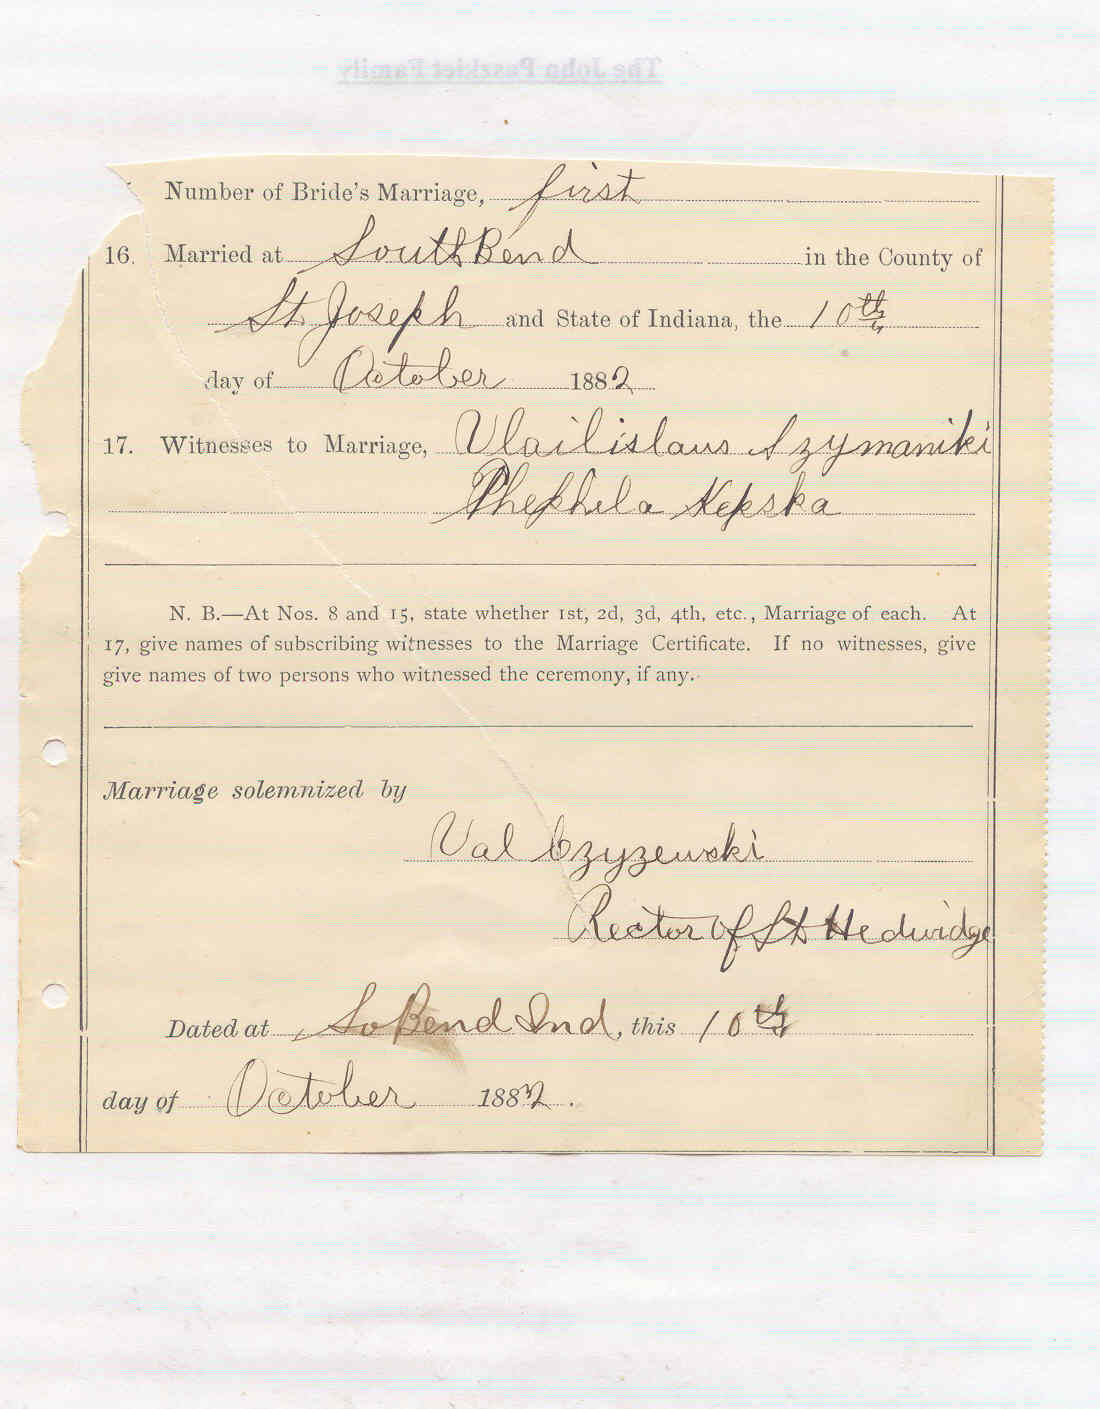 The John Paszkiet Family
Number of Bride's Marriage, first
16. Married at South Bend in the County of
St. Joseph and State of Indiana, the 10th
day of October 1882
17. Witnesses to Marriage, Vlailislaus Szymaniki
Phephela Kepska
N. B.—At Nos. 8 and 15, state whether 1st, 2d, 3d, 4th, etc., Marriage of each. At
17, give names of subscribing witnesses to the Marriage Certificate. If no witnesses, give
give names of two persons who witnessed the ceremony, if any.
Marriage solemnized by
Val Czyzewski
Rector of St Hedwidge
Dated at So Bend Ind, this 10th
day of October 1882.